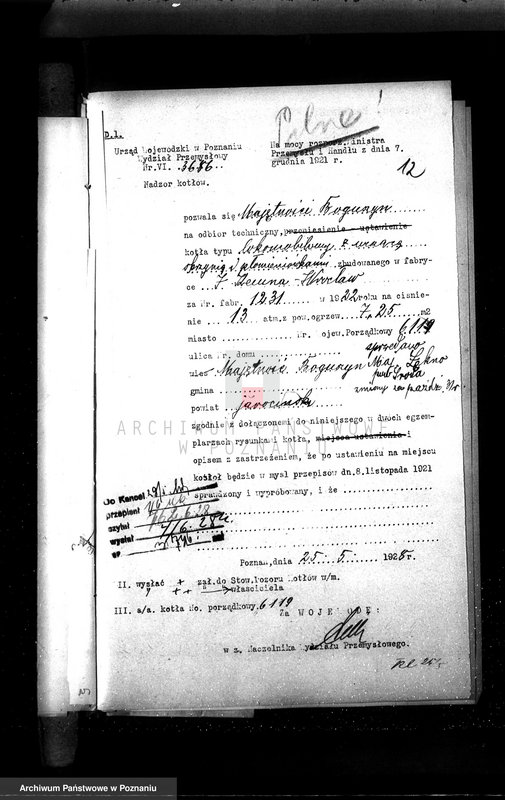 Pilne!
D.1.
Urząd Wojewodzki w Poznaniu
Wydział Przemysłowy
Nr.VI. 3686
Nadzor kotłow.
Na mocy rozporz. Ministra
Przemysłu i Handlu z dnia 7.
grudnia 1921 r.
12
pozwala się Majętności Bogunyn
na odbior techniczny, przeniesienie - ustawienie
kotła typu Lokomobilowy z
płomieniówkami zbudowanego w fabry-
ce J. Kemna - Wrocław
za Nr. fabr. 1231 w 1922 roku na cisnie-
nie 13 atm. z pow. ogrzew. 7,25 m2
miasto Nr. ojew. Porządkowy 6119
ulica Nr. domu sprzedano
wies Majętność Bogunyn Maj. Łękno
pow. Środa
gmina zmiany
powiat jarociński
zgodnie z dołączonemi do niniejszego w dwuch egzem-
plarzach rysunkami kotła, miejsca ustawienia i
opisem z zastrzeżeniem, że po ustawieniu na miejscu
kotłoł będzie w mysl przepisów dn. 8. listopada 1921
sprawdzony i wypróbowany, i że
Do Kancel.
przepisał
czytał
wysłał 7/6. 28
Poznań, dnia 25. 5. 1928r.
II. wysłać + zał. do Stow. Dozoru Kotłów w/m.
" + + właściciela
III. a/a. kotła No. porządkowy. 6119
Za WOJEWODĘ:
w z. Naczelnika Wydziału Przemysłowego.
ARCHIWUM PAŃSTWOWE
W POZNANIU
Archiwum Państwowe w Poznaniu